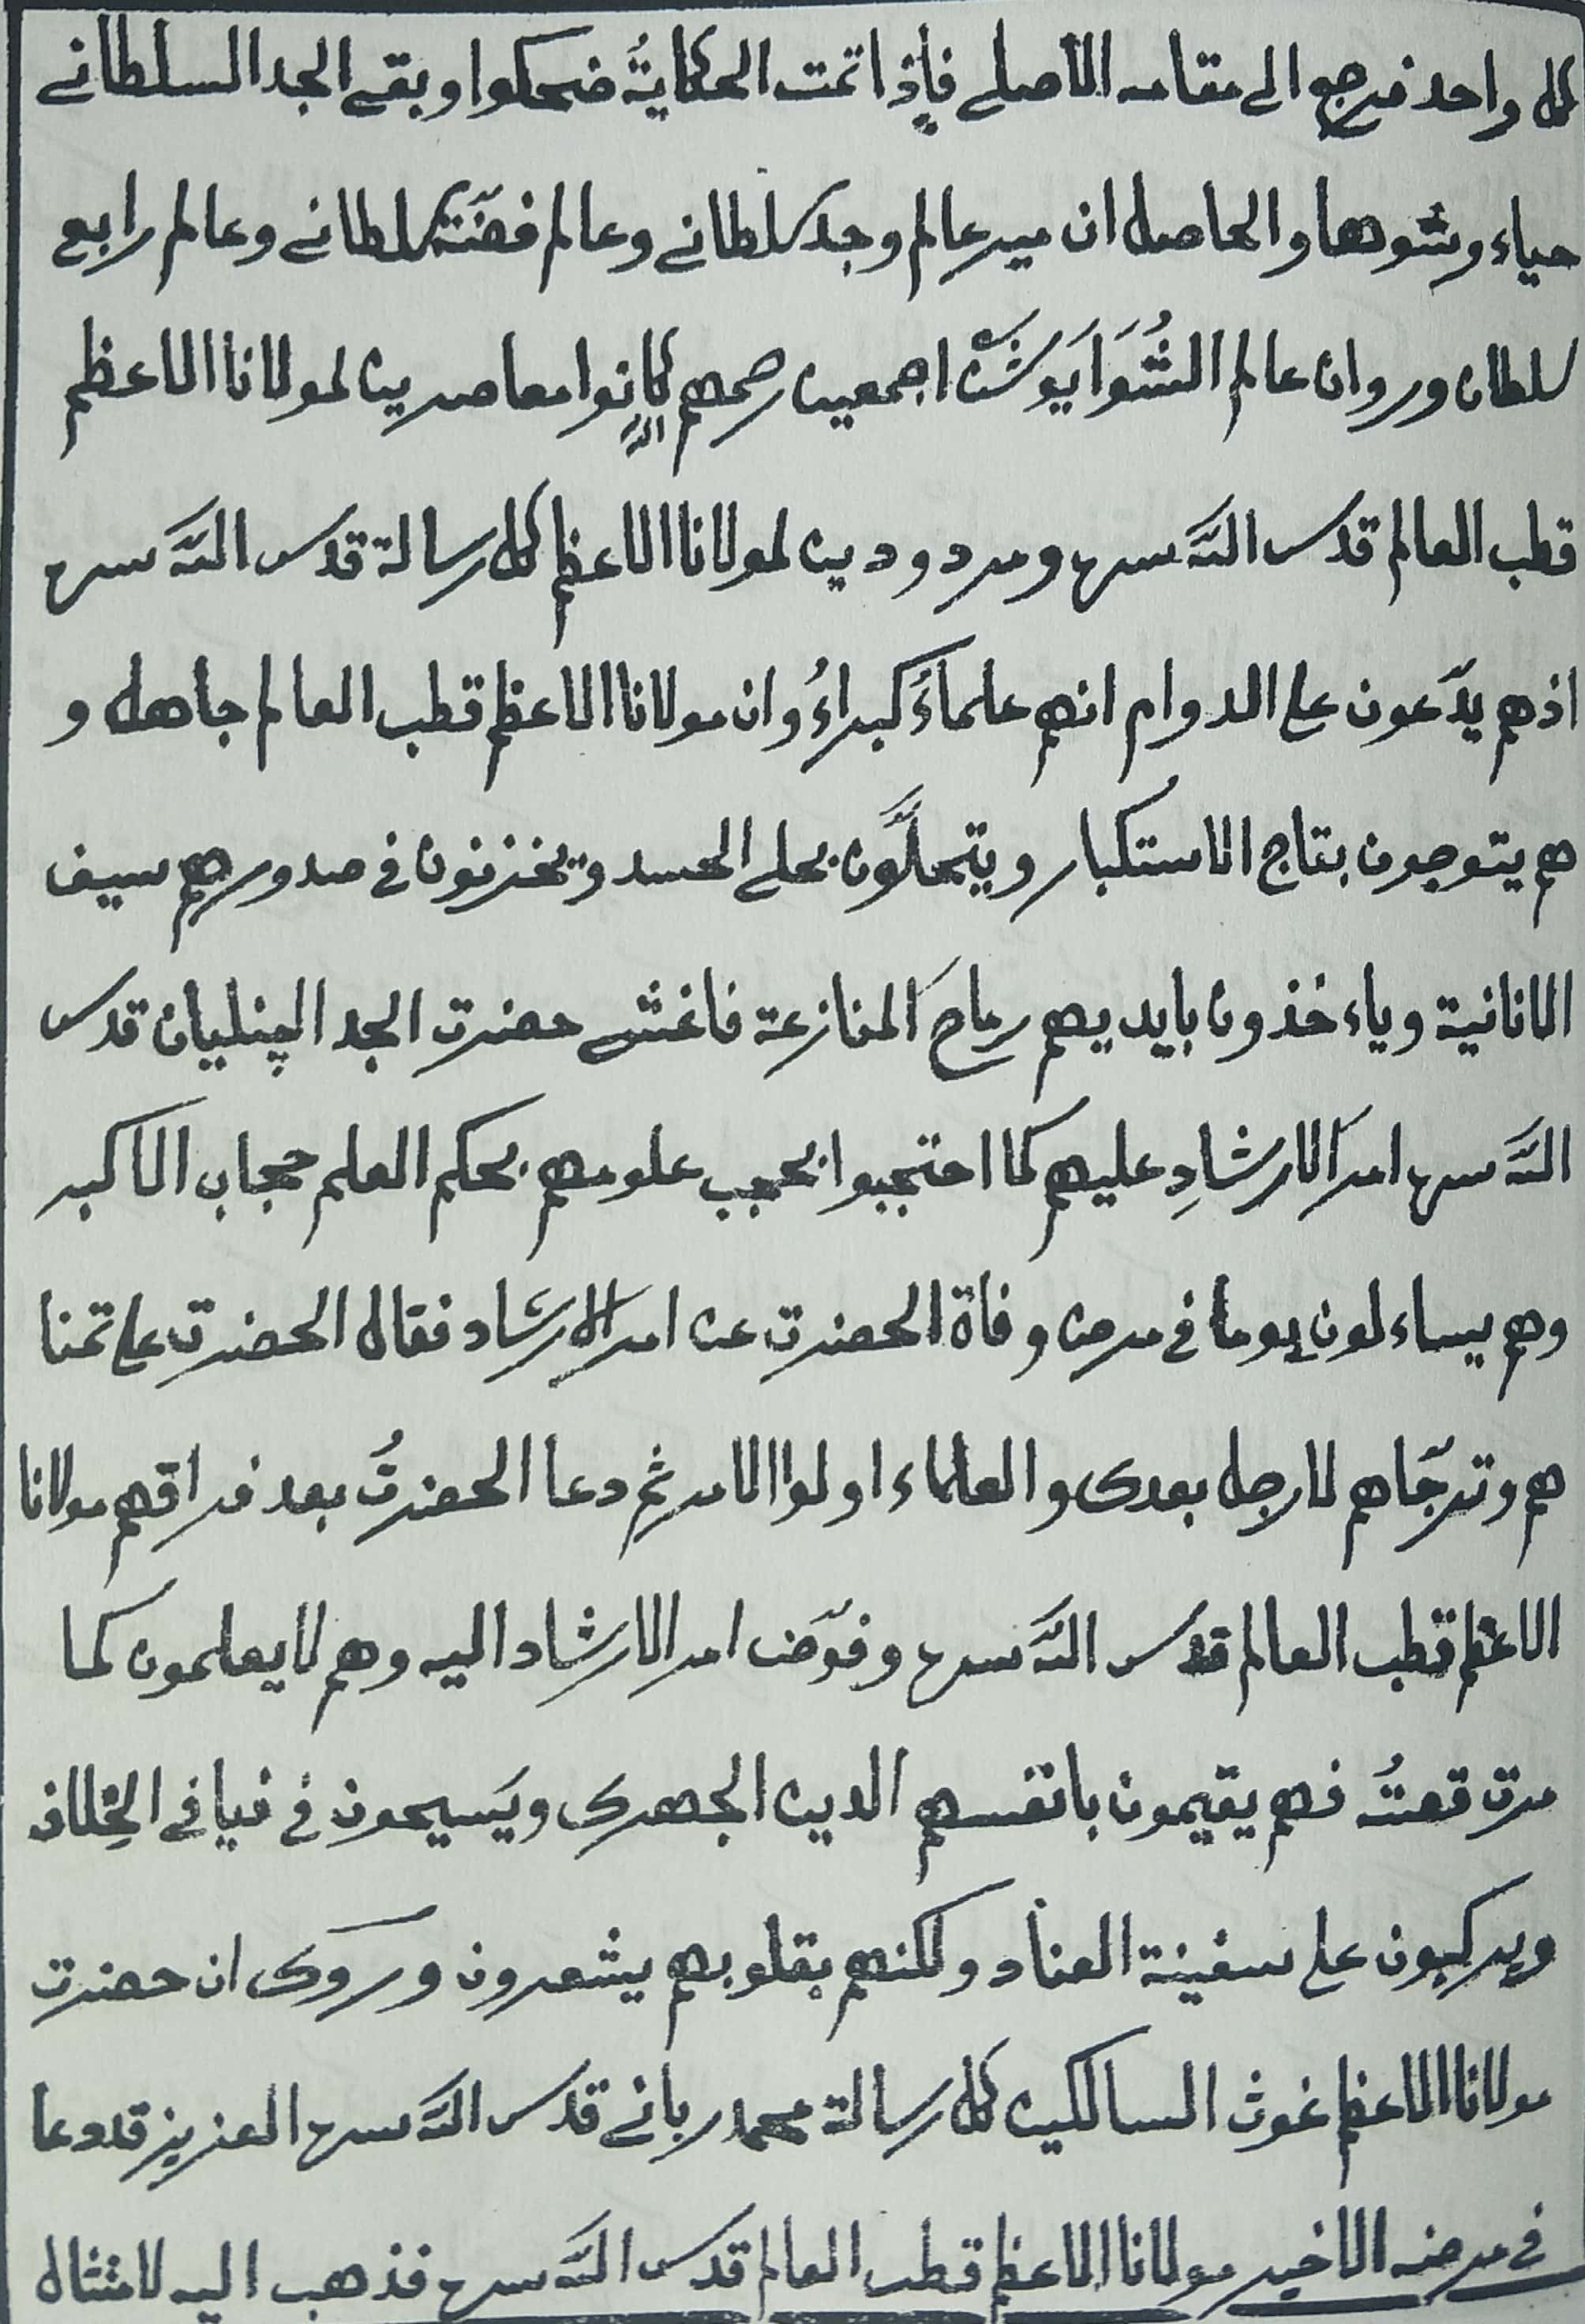 كل واحد فرجع الى مقامه الأصلے فإذا تمت الحكايةُ ضحكوا وبقے الجد السلطانے
حياء وشوها والحاصل ان مير عالم وجد سلطانے وعالم فضّة سلطانے وعالم رابع
سلطان وروان عالم الشُوَايَوشَه اجمعين رحمهم الله كانوا معاصرين لمولانا الاعظم
قطب العالم قدس اللّه سره ومردودين لمولانا الاعظم كل رسالة قدس اللّه سره
اذهم يدّعون على الدوام انهم علماءَ كبراءُ وان مولانا الاعظم قطب العالم جاهل و
هم يتوجون بتاج الاستكبار ويتحلَّون بحلے الحسد ويخزنون فى صدورهم سيف
الانانية وياءخذون بايديهم رماحَ المنازعة فاغشے حضرت الجد الچنليان قدس
اللّه سره امرَ الارشادِ عليهم كما احتجبوا بحجب علومهم بحكم العلم حجاب الاكبر
وهم يساءلون يوما فى مرض وفاة الحضرت عن امر الارشاد فقال الحضرت على تمنا
هم وترجّاهم لا رجل بعدى والعلماء اولوا الامر ثم دعا الحضرتُ بعد فراقهم مولانا
الاعظم قطب العالم قدس اللّه سره وفوّض امر الارشاد اليه وهم لا يعلمون كما
مرت قصتُه فهم يقيمون بانفسهم الدين الجهرى ويَسيحون فى فيافى الخِلاف
ويركبون على سفينة العناد ولكنهم بقلوبهم يشعرون وروى ان حضرت
مولانا الاعظم غوث السالكين كل رسالة محمد ربانے قدس اللّه سره العزيز قد دعا
فى مرضه الاخير مولانا الاعظم قطب العالم قدس اللّه سره فذهب اليه لامتثال